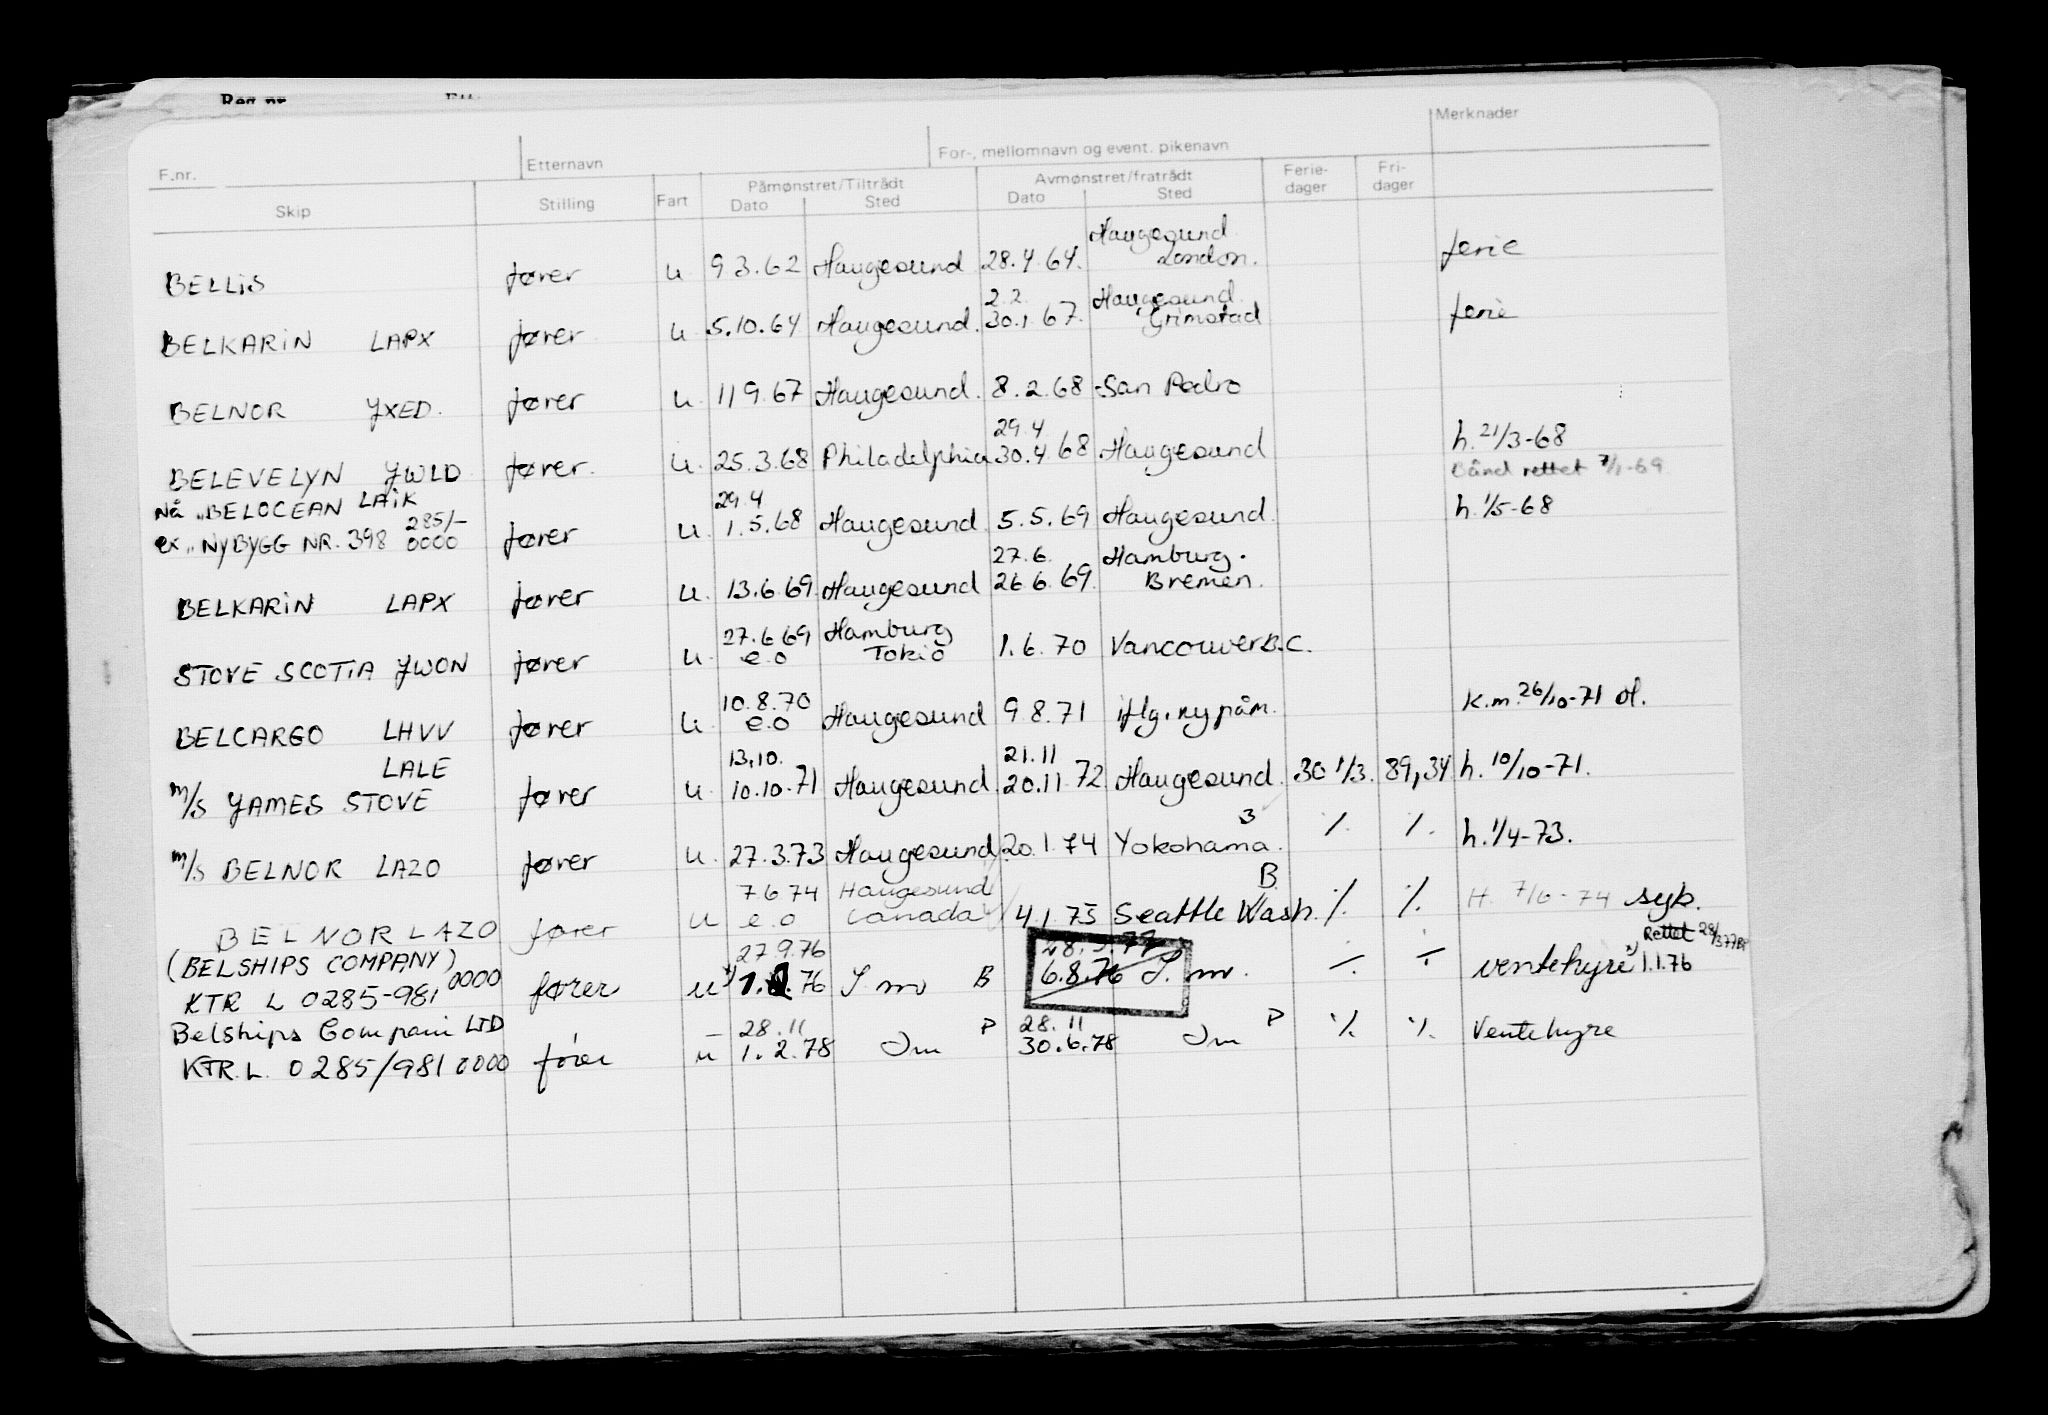 Reg.nr.
F.nr. Etternavn For-, mellomnavn og event. pikenavn Merknader
Skip Stilling Fart Påmønstret/Tiltrådt Dato Sted Avmønstret/fratrådt Dato Sted Ferie-dager Fri-dager
Haugesund
BELLIS fører u 9 3.62 Haugesund 28.4.64. London. ferie
2.2. Haugesund
BELKARIN LAPX fører u 5.10.64 Haugesund. 30.1.67. Grimstad ferie
BELNOR JXED. fører u. 11 9.67 Haugesund. 8.2.68 San Pedro
29.4 h. 21/3-68
BELEVELYN JWLD fører. u. 25.3.68 Philadelphia 30.4.68 Haugesund Bånd rettet 7/1-69
Nå „BELOCEAN LAIK 29.4
285/-
ex „NYBYGG NR. 398 0000 fører u. 1.5.68 Haugesund. 5.5.69 Haugesund. h. 1/5-68
27.6. Hamburg.
BELKARIN LAPX fører u. 13.6.69. Haugesund 26.6.69. Bremen.
27.6.69 Hamburg
STOVE SCOTIA JWON fører u. e.o Tokio 1.6.70 Vancouver B.C.
10.8.70
BELCARGO LHVV fører u. e.o Haugesund 9.8.71 iflg. ny påm. K.m. 26/10-71 ol.
LALE 13.10. 21.11
m/s JAMES STOVE fører u. 10.10.71 Haugesund. 20.11.72 Haugesund. 30 1/3. 89,34 h. 10/10-71.
3
m/s BELNOR LAZO fører u. 27.3.73 Haugesund. 20.1.74 Yokohama. % %. h. 1/4-73.
7.6 74 Haugesund B.
BELNOR LAZO fører u e.o Canada 4.1.75 Seattle Wash. %. %. H. 7/6-74 syk.
(BELSHIPS COMPANY) 27.9.76 28.3.77 Rettet 28/3 77
KTR L 0285-981 0000 fører u 1. .76 J mo B 6.8.76 J. mo. ÷ ÷ ventehyre 1.1.76
Belships Company LTD 28.11 P 28.11 P
KTR. L. 0285/981 0000 fører u 1.2.78 Jm 30.6.78 Jm %. %. Ventehyre